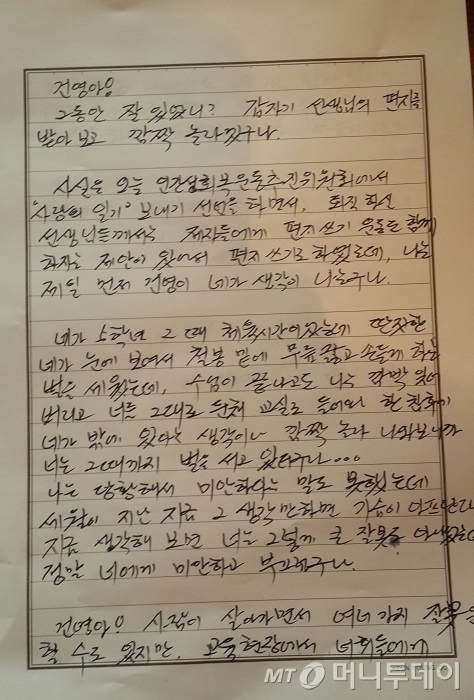 건영아!
그동안 잘 있었니? 갑자기 선생님의 편지를
받아 보고 깜짝 놀라겠구나.
사실은 오늘 인간성회복운동추진위원회에서
"사랑의 일기" 보내기 선언을 하면서, 퇴직하신
선생님들께서는 제자들에게 편지쓰기 운동도 함께
하자는 제안이 있어서 편지쓰기로 하였는데, 나는
제일 먼저 건영이 네가 생각이 나는구나.
네가 5학년 그때 체육시간이었는데 딴짓한
네가 눈에 보여서 철봉 밑에 무릎 꿇고 손들게 하는
벌을 세웠는데, 수업이 끝나고도 나는 깜박 잊어
버리고 너를 그대로 둔채 교실로 들어와 한참후에
네가 밖에 있다는 생각이나 깜짝 놀라 나와보니까
너는 그때까지 벌을 서고 있더구나...
나는 당황해서 미안하다는 말도 못했는데
세월이 지난 지금 그 생각만하면 가슴이 아프단다
지금 생각해 보면 너는 그렇게 큰 잘못도 아니었는데
정말 너에게 미안하고 부끄럽구나.
건영아! 사람이 살아가면서 여러가지 잘못을
할 수도 있지만, 교육현장에서 너희들에게
MT 머니투데이